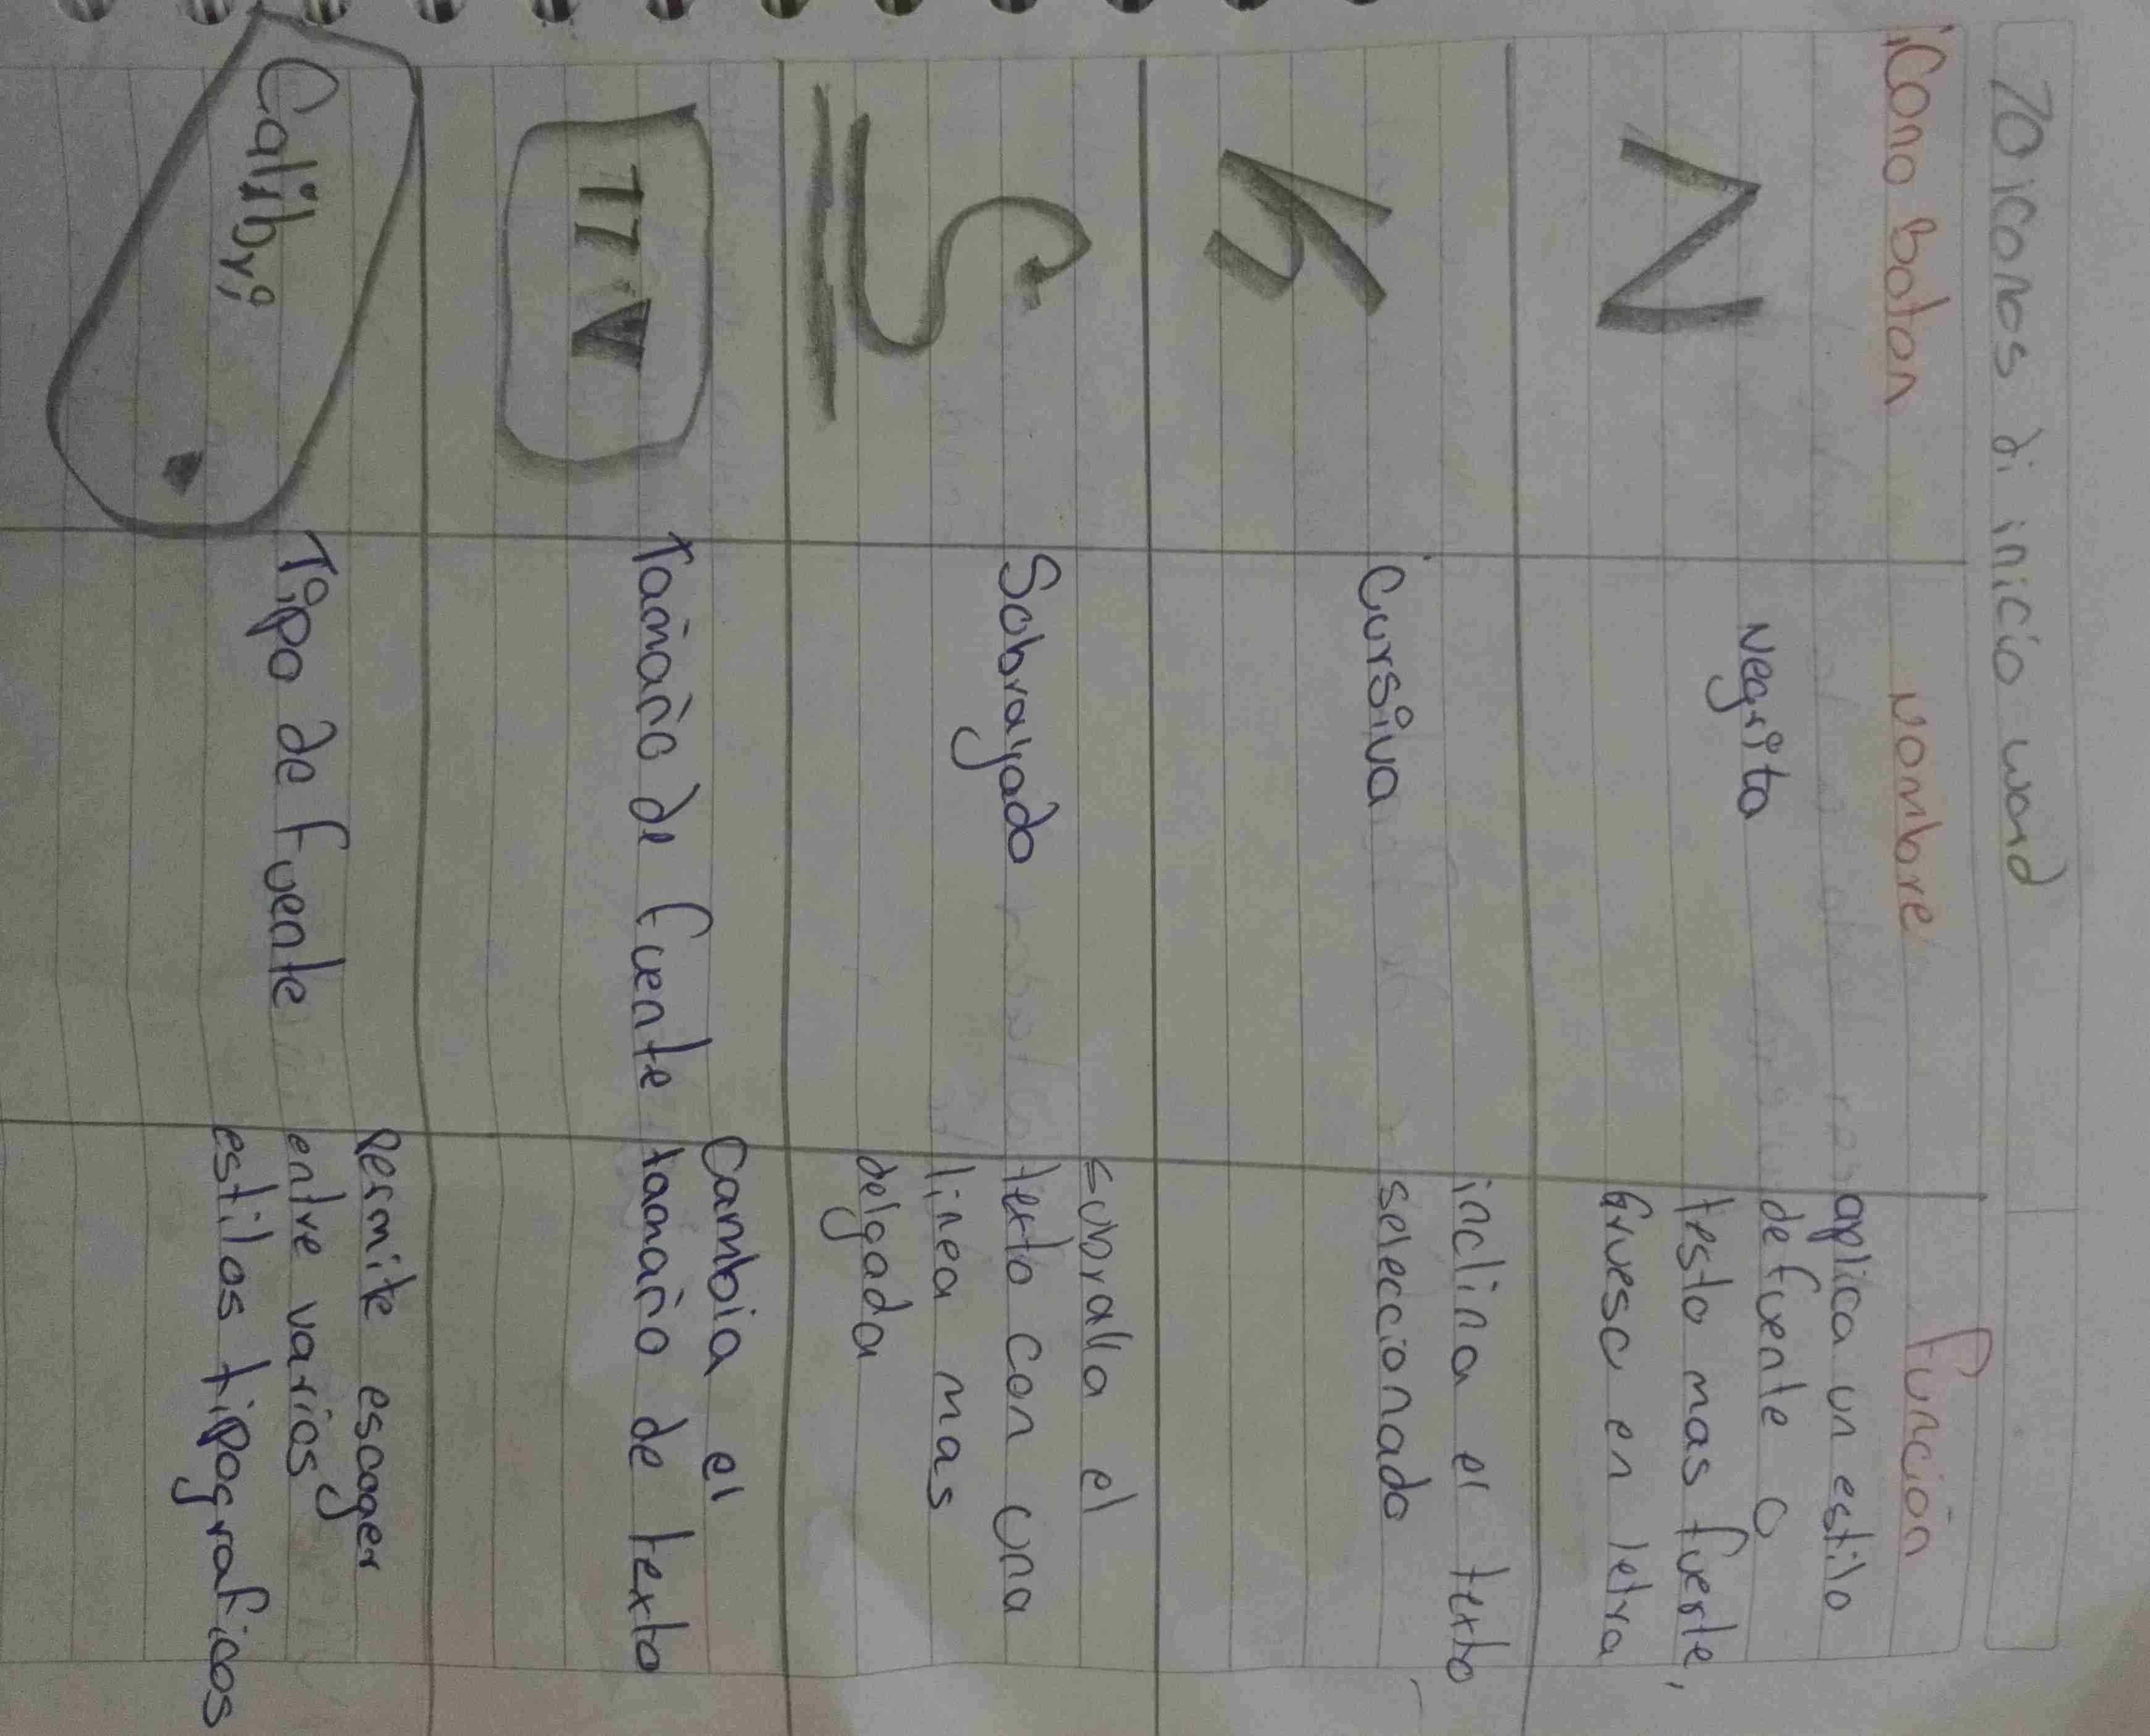 10 iconos di inicio word
icono Boton
Nombre
Función
N
Negrita
aplica un estilo
de fuente o
testo mas fuerte,
Grueso en letra
K
Cursiva
inclina el texto
seleccionado
S
Sobrayado
subralla el
texto con una
linea mas
delgada
11
Tamaño de fuente
Cambia el
tamaño de texto
Calibri
Tipo de fuente
Permite escoger
entre varios
estilos tipograficos